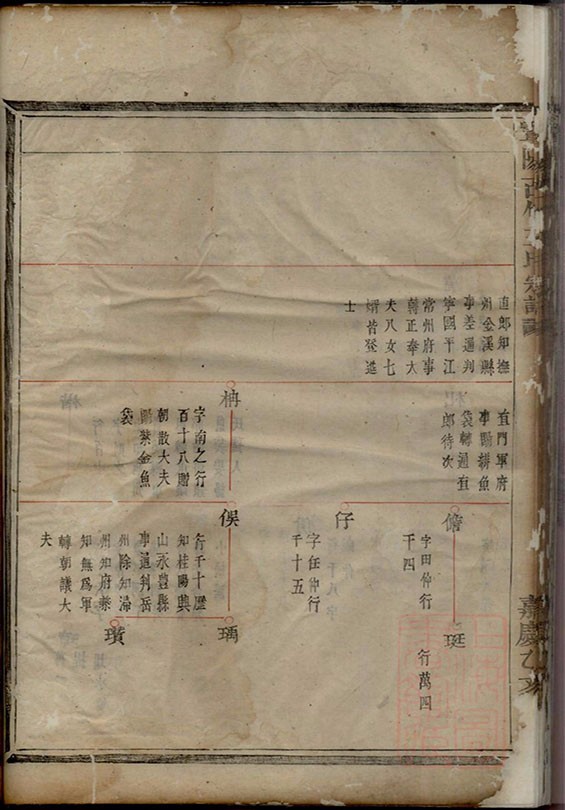 嘉慶乙亥
直郎知撫
州金溪縣
事差通判
寧國平江
常州府事
朝正奉大
夫八女七
婿皆登進
士
直門軍府
事賜緋魚
袋轉通直
郎待次
字南之行
百十八贈
朝散大夫
賜紫金魚
袋
俯
字田仲行
千四
仔
字任仲行
千十五
俁
行千十歷
知桂陽興
山永豊縣
事通判岳
州除知歸
州知府兼
知無為軍
轉朝議大
夫
珽
行萬四
瑀
瓚